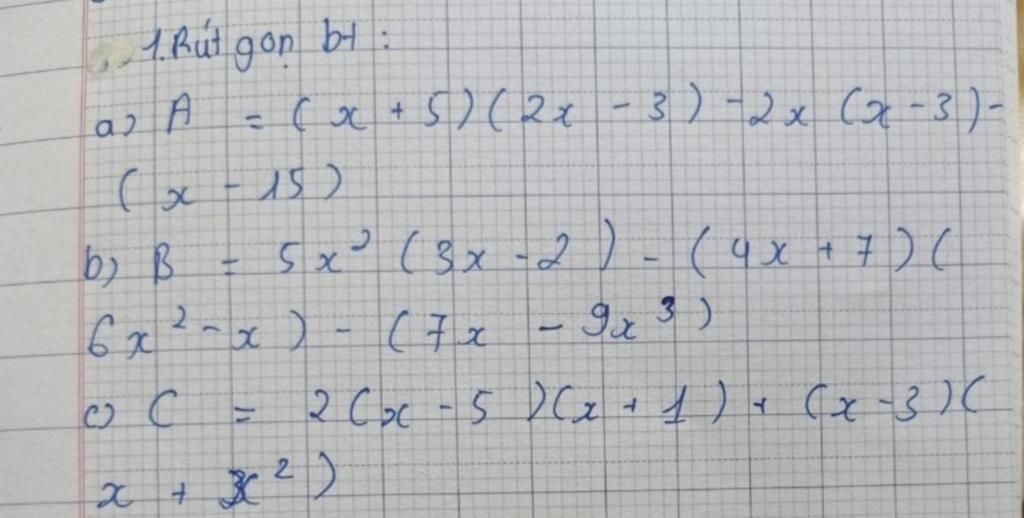 1. Rút gọn bt :
a) A = (x + 5)(2x - 3) - 2x (x - 3) -
(x - 15)
b) B = 5x² (3x - 2) - (4x + 7)(
6x² - x) - (7x - 9x³)
c) C = 2(x - 5)(x + 1) + (x - 3)(
x + x²)